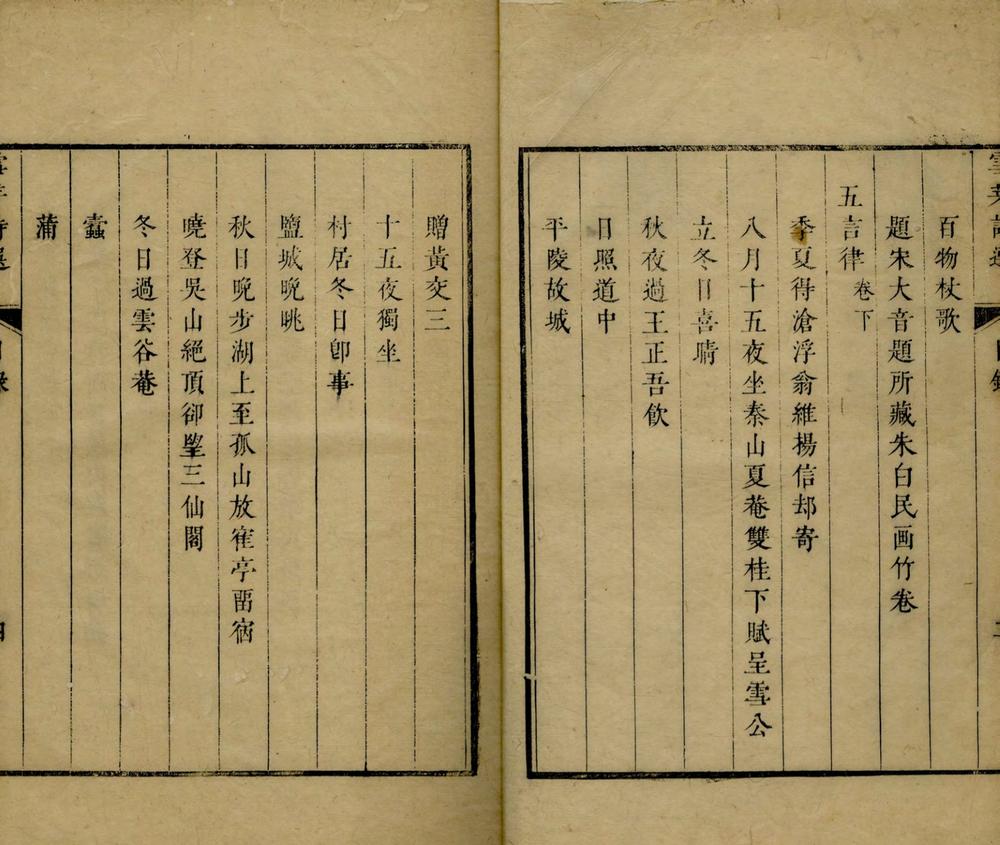 百物杖歌
題宋大音題所藏朱白民画竹卷
五言律 卷下
季夏得滄浮翁維揚信却寄
八月十五夜坐秦山夏菴雙桂下賦呈雪公
立冬日喜晴
秋夜過王正吾飲
日照道中
平陵故城
贈黃交三
十五夜獨坐
村居冬日卽事
鹽城晚眺
秋日晚步湖上至孤山放隺亭畱宿
曉登吳山絕頂卻朢三仙閣
冬日過雲谷菴
蠹
蒲